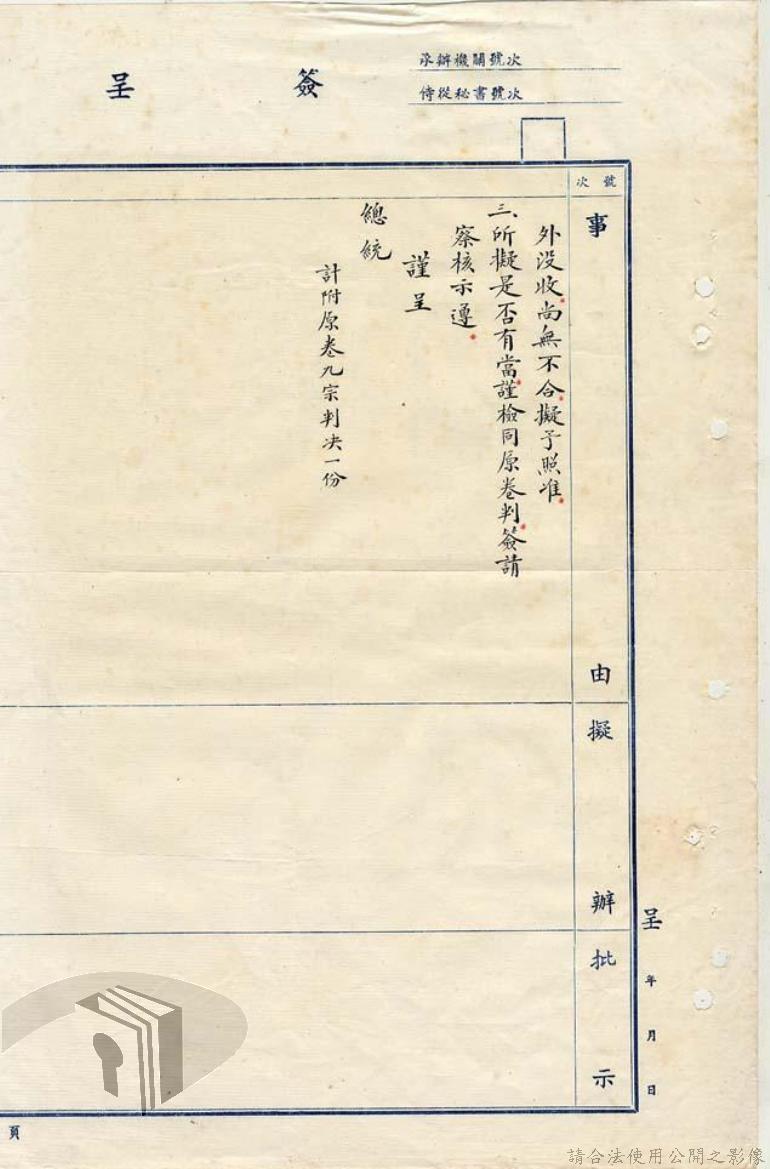 簽呈
承辦機關號次
侍從秘書號次
號次
事由
擬辦
批示
外没收尚無不合擬予照准
三、所擬是否有當謹檢同原卷判簽請
察核示遵
謹呈
總統
計附原卷九宗判決一份
呈 年 月 日
頁
請合法使用公開之影像